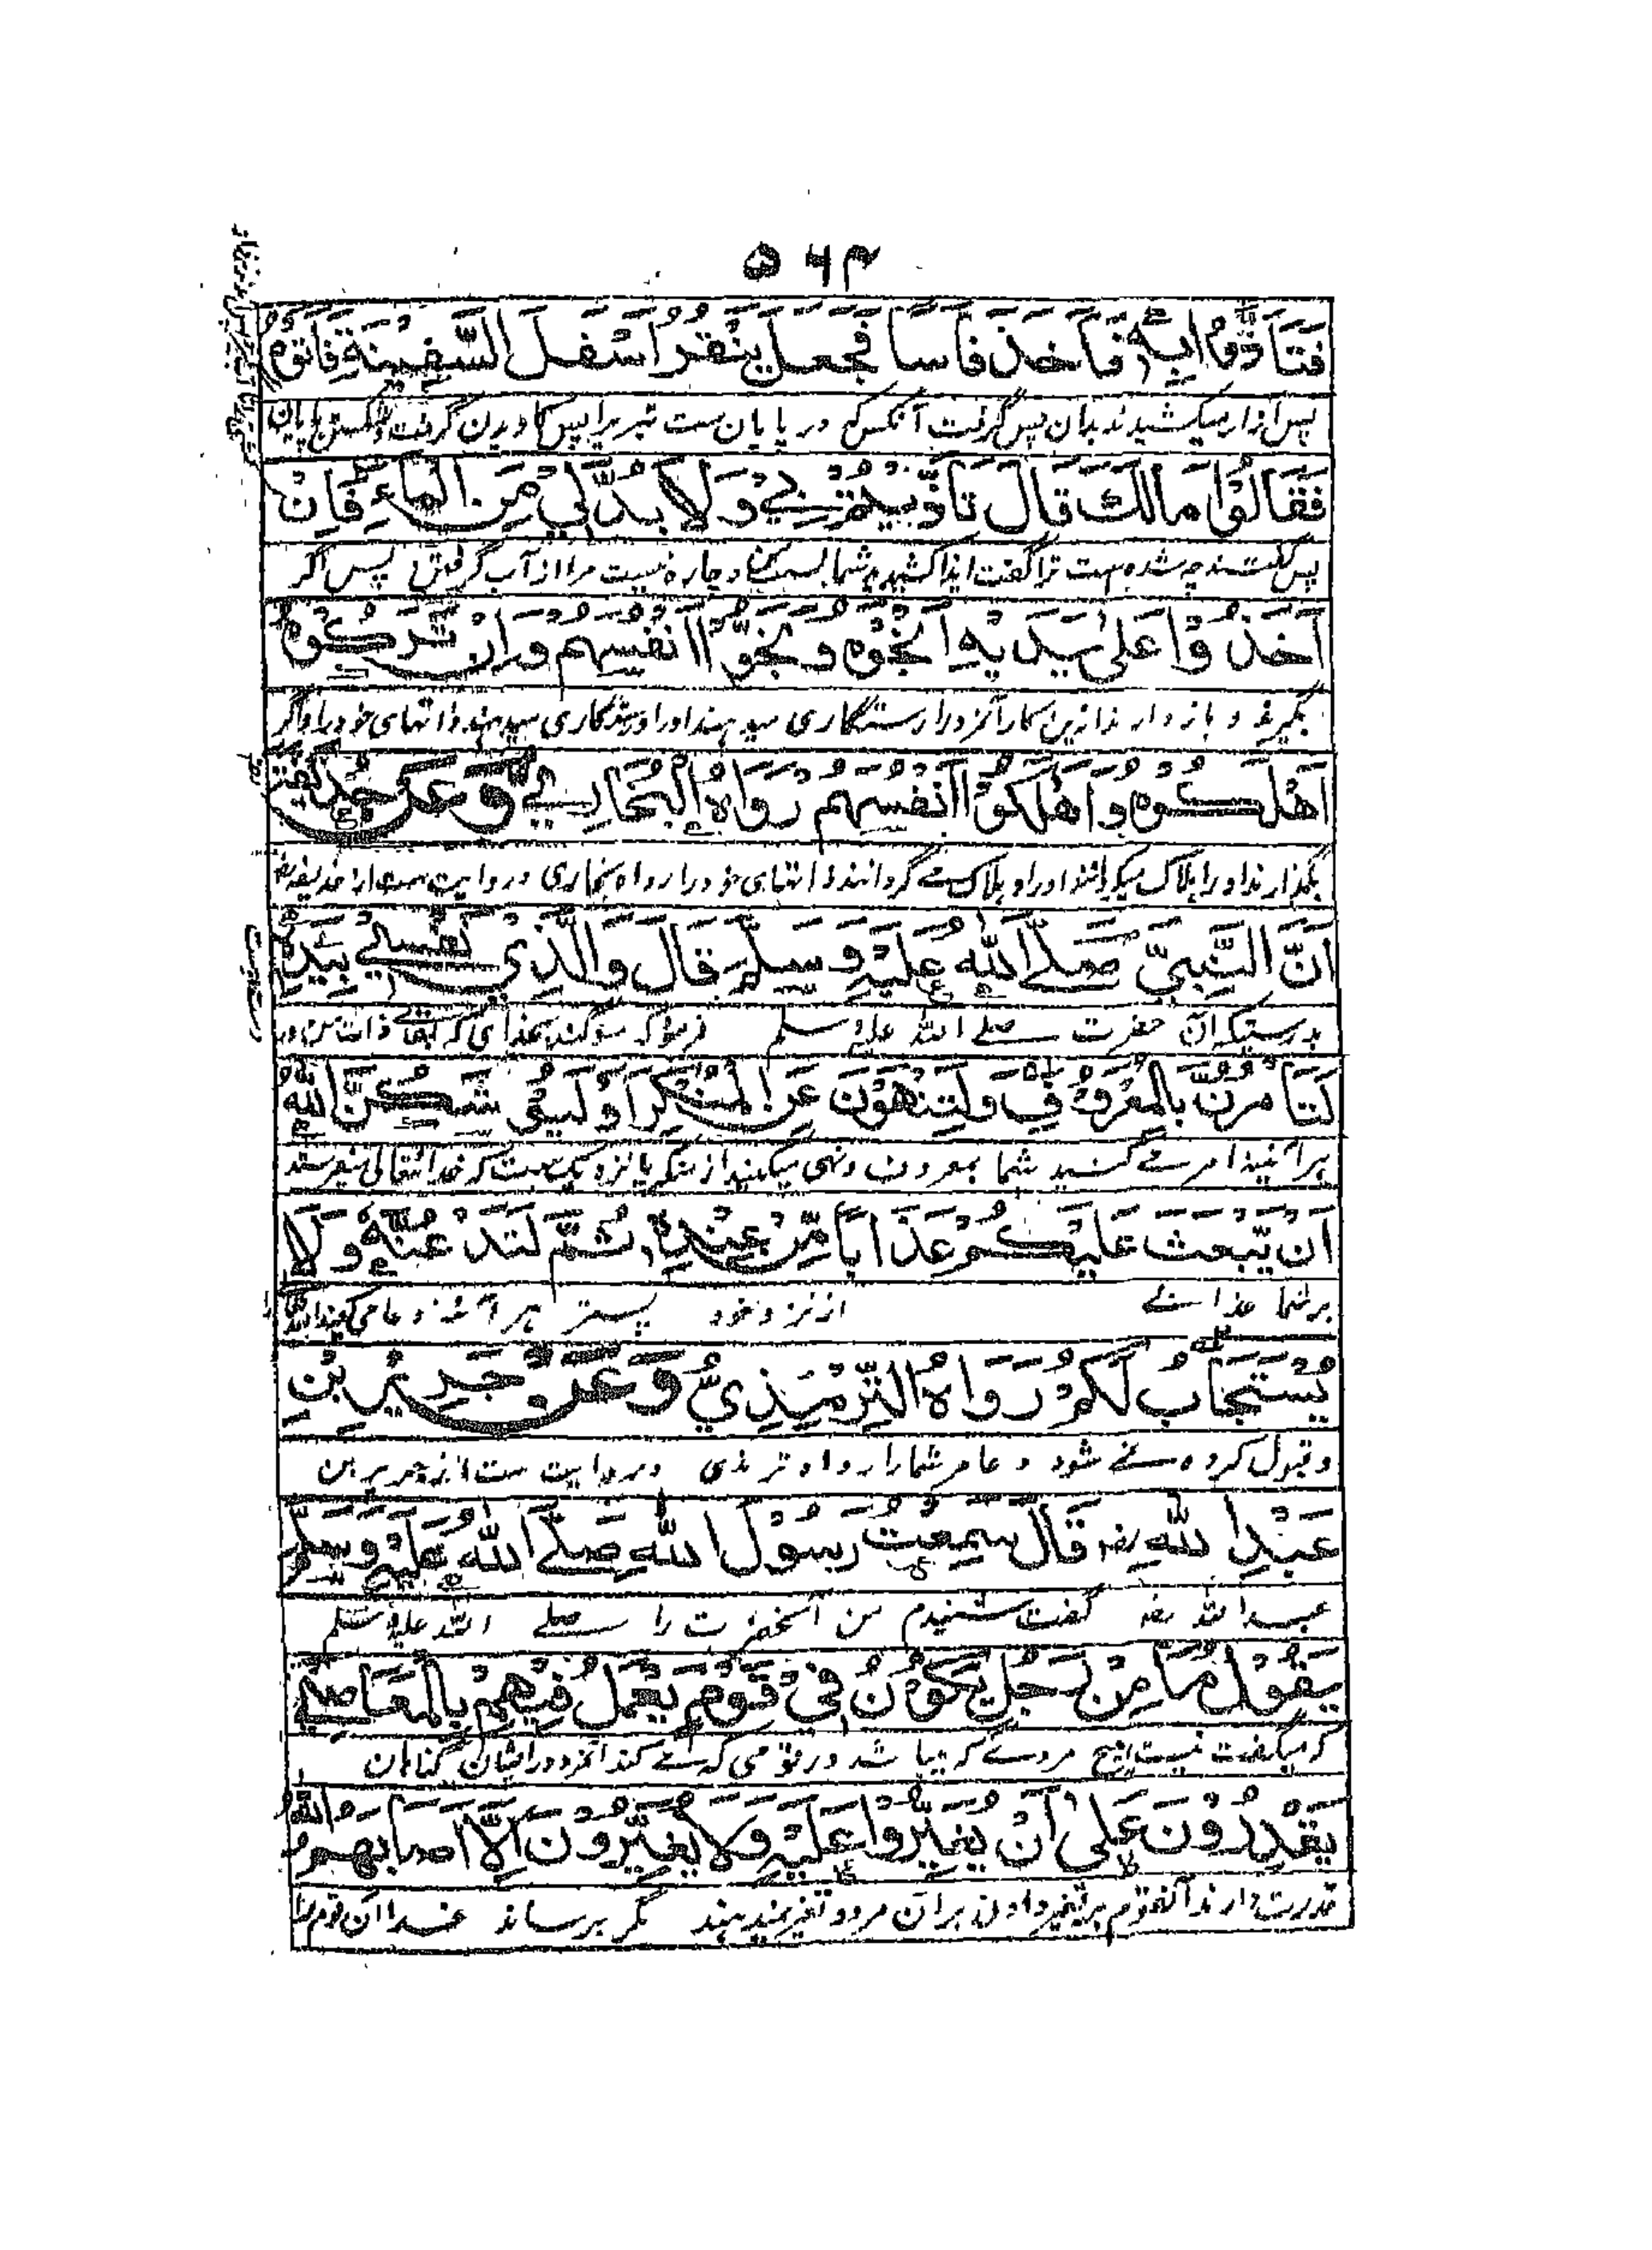 ۵۶۴
فَتَأَذَّوْا بِهٖ فَأَخَذَ فَأْسًا فَجَعَلَ يَنْقُرُ أَسْفَلَ السَّفِيْنَةِ فَأَتَوْهُ
پس آزار میکشیدند بآن پس گرفت آنکس که در پایان ست تبر را پس
فَقَالُوْا مَالَكَ قَالَ تَأَذَّيْتُمْ بِيْ وَلَا بُدَّ لِيْ مِنَ الْمَاءِ فَإِنْ
پس گفتند چه شده است ترا گفت ایذا کشیدید شما و چاره نیست مرا از آب گرفتن پس اگر
أَخَذُوْا عَلٰى يَدَيْهِ أَنْجَوْهُ وَنَجَّوْا أَنْفُسَهُمْ وَإِنْ تَرَكُوْهُ
بگیرند و باز دارند رستگاری میدهند او را و رستگاری میدهند ذاتهای خود را و اگر
أَهْلَكُوْهُ وَأَهْلَكُوْا أَنْفُسَهُمْ رَوَاهُ الْبُخَارِيُّ وَعَنْ حُذَيْفَةَ
بگذارند او را هلاک میگردانند او را و هلاک مے گردانند ذاتهای خود را رواه بخاری و روایت ست از حذیفه رض
أَنَّ النَّبِيَّ صَلَّى اللهُ عَلَيْهِ وَسَلَّمَ قَالَ وَالَّذِيْ نَفْسِيْ بِيَدِهٖ
بدرستیکه آن حضرت صلے الله علیه وسلم فرمود که سوگند بخدای که بقای ذات من در
لَتَأْمُرُنَّ بِالْمَعْرُوْفِ وَلَتَنْهَوُنَّ عَنِ الْمُنْكَرِ أَوْ لَيُوْشِكَنَّ اللهُ
هر آئینه امر مے کنید شما بمعروف و نهی میکنید از منکر یا نزدیک ست که خدا تعالی بفرستد
أَنْ يَّبْعَثَ عَلَيْكُمْ عَذَابًا مِّنْ عِنْدِهٖ ثُمَّ لَتَدْعُنَّهٗ وَلَا
بر شما عذابے از نزد خود پستر هر آئینه دعا می کنید
يُسْتَجَابُ لَكُمْ رَوَاهُ التِّرْمِذِيُّ وَعَنْ جَرِيْرِ بْنِ
و قبول کرده نمے شود دعا مر شما را رواه ترمذی و روایت ست از جریر بن
عَبْدِ اللهِ رض قَالَ سَمِعْتُ رَسُوْلَ اللهِ صَلَّى اللهُ عَلَيْهِ وَسَلَّمَ
عبد الله رض گفت شنیدم من آنحضرت را صلے الله علیه وسلم
يَقُوْلُ مَا مِنْ رَجُلٍ يَكُوْنُ فِيْ قَوْمٍ يَعْمَلُ فِيْهِمْ بِالْمَعَاصِيْ
که میگفت نیست هیچ مردے که بباشد در قومی که مے کند آنمرد در ایشان گناهان
يَقْدِرُوْنَ عَلٰى أَنْ يُغَيِّرُوْا عَلَيْهِ وَلَا يُغَيِّرُوْنَ إِلَّا أَصَابَهُمُ اللهُ
قدرت دارند آنقوم بر تغیر دادن بر آن مرد و تغیر نمیدهند مگر برساند خدا آن قوم را